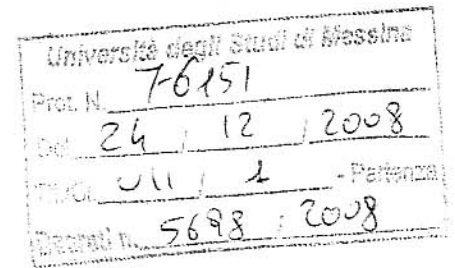 Università degli Studi di Messina
Prot. N. 76151
Del 24 / 12 / 2008
Tit/Cl. VII / 1 - Partenza
Decreti n. 5698 / 2008